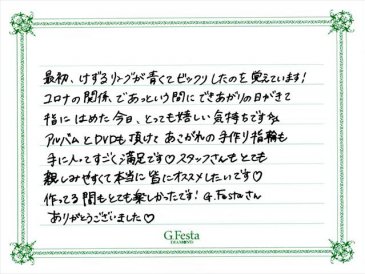 最初、けずるリングが青くてビックリしたのを覚えています!
コロナの関係、であっという間にできあがりの日がきて
指にはめた今日、とっても嬉しい気持ちですね
アルバムとDVDも頂けて あこがれの手作り指輪も
手に入ってすごく満足です♡スタッフさんもとても
親しみやすくて本当に皆にオススメしたいです♡
作ってる間もとても楽しかったです! G.Festaさん
ありがとうございました♡
G.Festa
DIAMOND